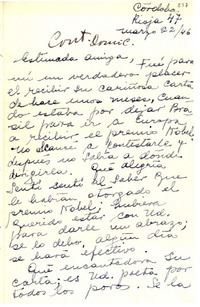 237
Córdoba
Rioja 47
marzo 22/46
Cont. Domic.
Estimada amiga, Fué para
mi un verdadero placer
el recibir su cariñosa carta
de hace unos meses, Cuan-
do estaba por dejar Bra-
sil para ir a Europa
a recibir el premio Nobel
no alcancé a contestarle y
después no sabía a donde
dirigirla. Que alegría
sentí al saber que
le habían otorgado el
premio Nobel; hubiera
querido estar con Ud.
para darle un abrazo;
se lo debo, algún día
se hará efectivo.
Que encantadora su
carta; es Ud. poeta por
todos los poros. Se la